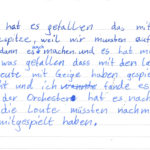 hat es gefallen das mit
spitze, weil wir mussten auf
dann es auch machen. und es hat mi
was gefallen dass mit den la
eute mit Geige haben gespie
ht und ich fände es
der Orchester hat es nach
die laute müssten nachm
mitgespielt haben.